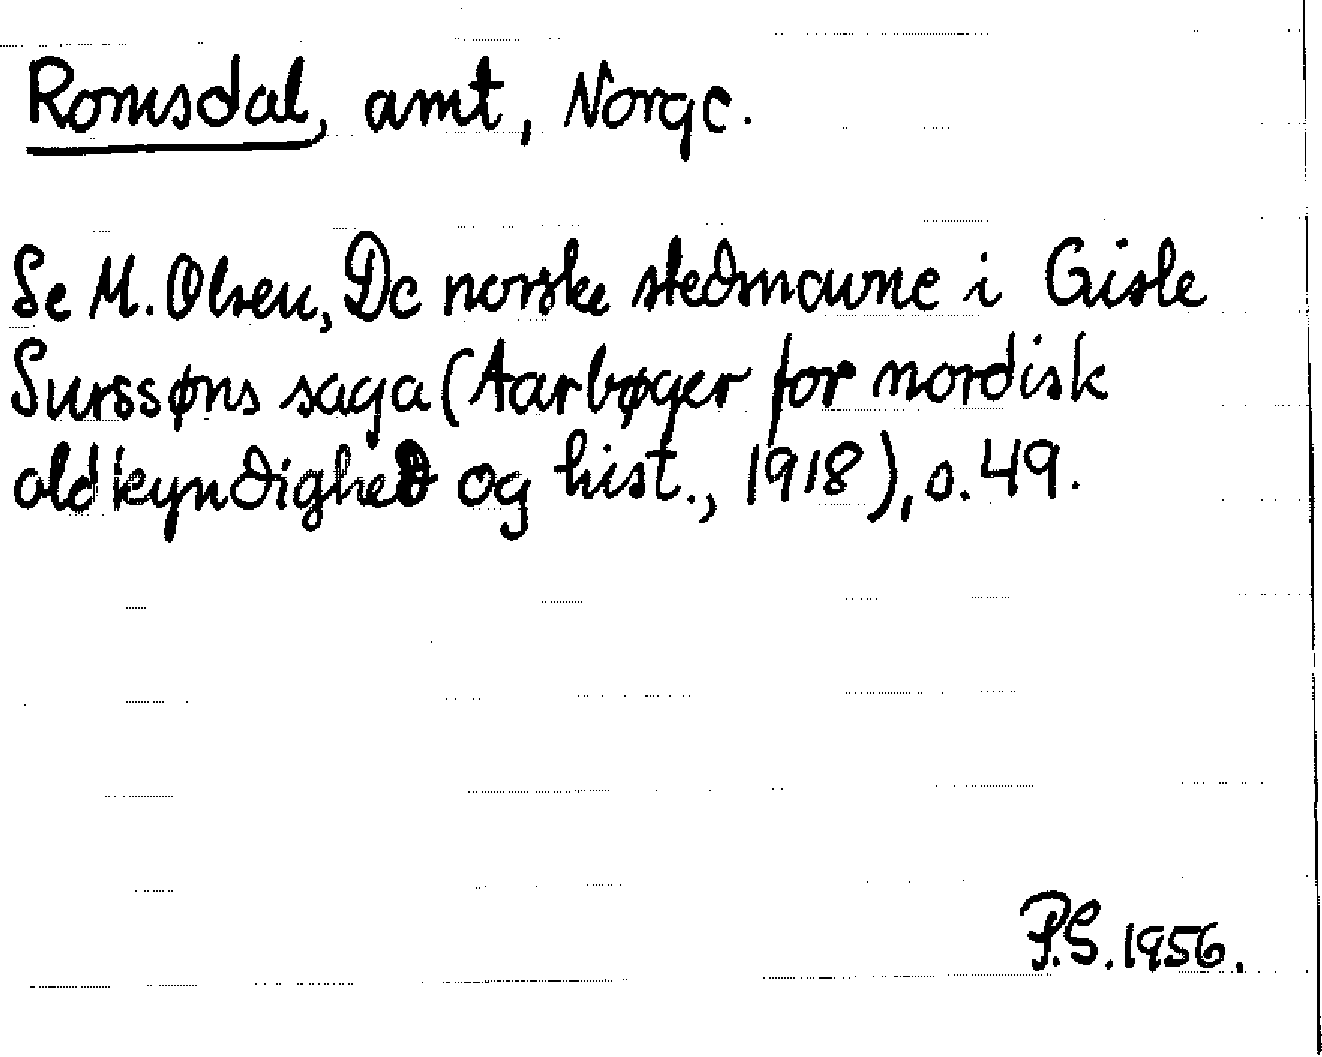 Romsdal, amt, Norge.
Se M. Olsen, De norske stedsnavne i Gisle
Surssøns saga (Aarbøger for nordisk
oldkyndighed og hist., 1918), s. 49.
P.S. 1956.